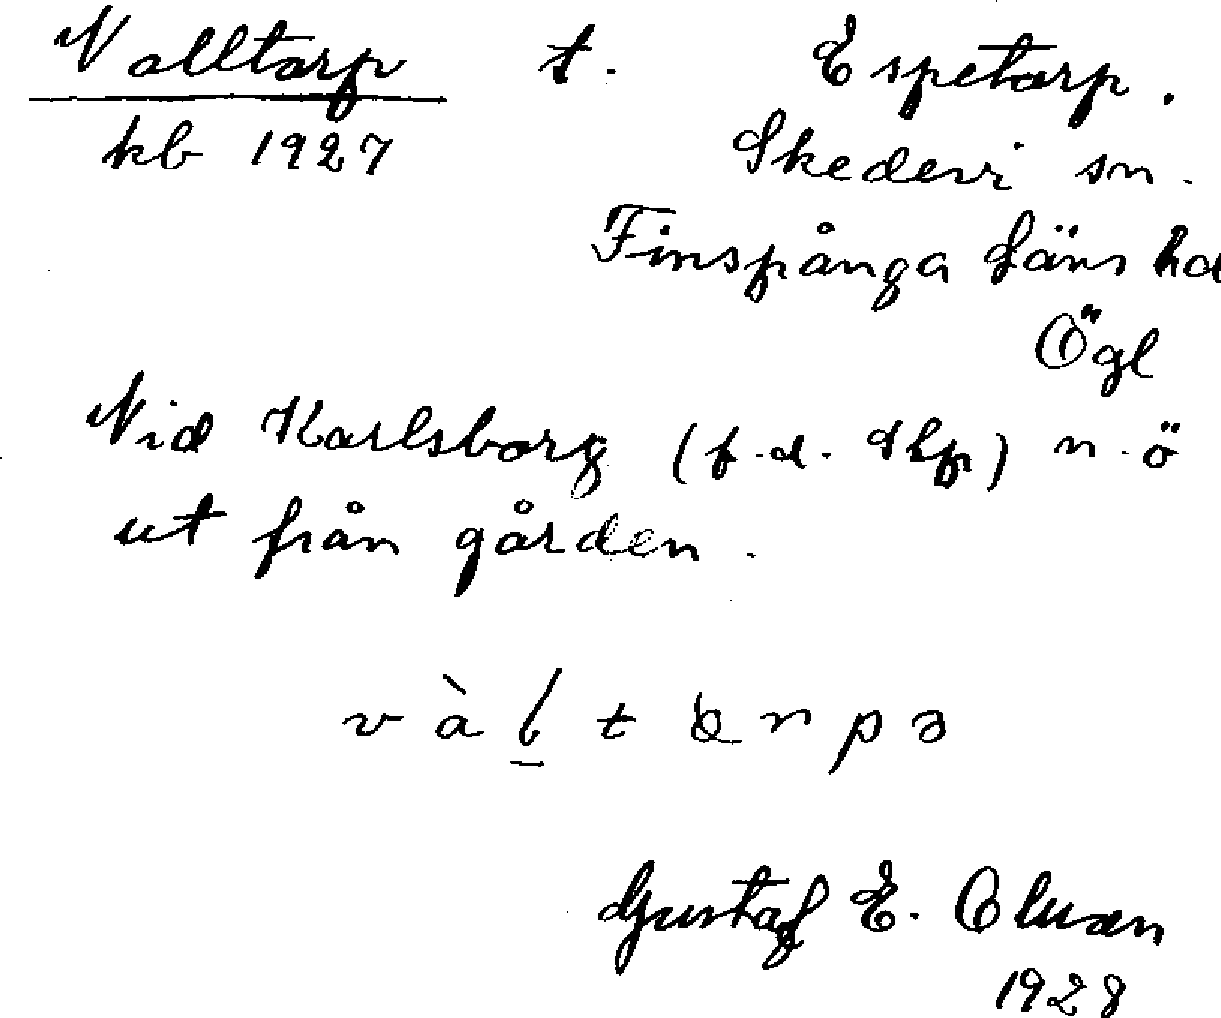 Valltorp t. Espetorp.
kb 1927 Skedevi sn.
Finspånga läns hd
Ögl
Vid Karlsborg (f.d. thp) n.ö
ut från gården.
v à l t
Gustaf E. Olsson
1928